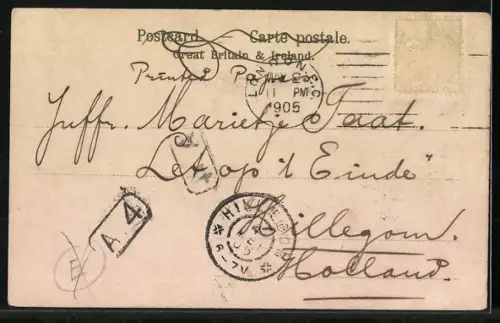 Postcard. Carte postale.
Great Britain & Ireland.
Printed Papers
LONDON
11 PM
1905
Juffr. Marietje Taat.
Let op 't Einde"
Hillegom.
Holland.
A 4
HILLEGOM
6-7V
E